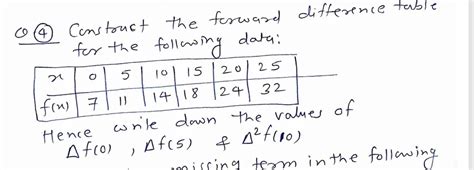 Q④ Construct the forward difference table
for the following data:
x 0 5 10 15 20 25
f(x) 7 11 14 18 24 32
Hence write down the values of
Δf(0), Δf(5) & Δ²f(10)
missing term in the following